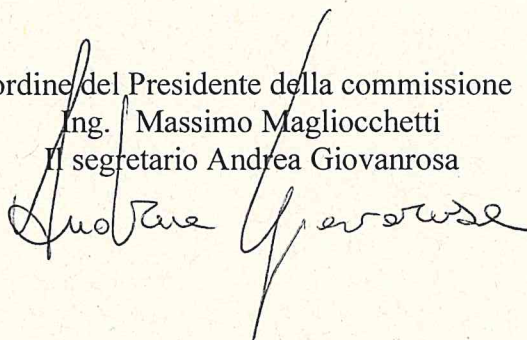 ordine del Presidente della commissione
Ing. Massimo Magliocchetti
Il segretario Andrea Giovanrosa
Andrea Giovanrosa